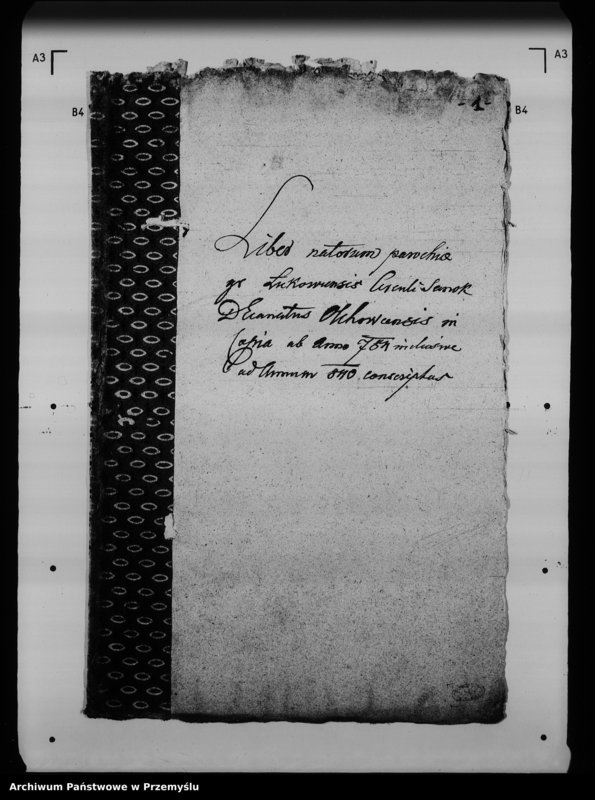 A3
A3
B4
B4
-1-
Liber natorum parochiæ
gr Łukowensis Circuli Sanok
DEcanatus Olchowcensis in
Copia ab Anno 784 inclusive
ad Annum 840 conscriptus
Archiwum Państwowe w Przemyślu